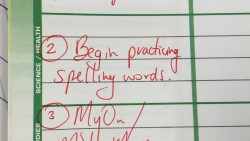 SCIENCE / HEALTH
② Begin practicing
spelling words.
③ MyOn /
DIES